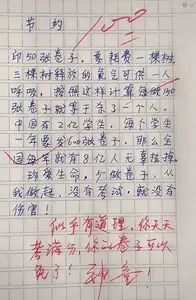 节约
印50张卷子，要耗费一棵树，
三棵树释放的氧气可供一人
呼吸，按照这样计算每做150
张卷子就等于杀了一个人。
中国有2亿学生，每个学生
一年要发600张卷子，那么全
国每年就有8亿人无辜枉死，
珍爱生命，少做卷子，从
我做起，没有考试，就没有
伤害！
似乎有道理，你天天
考满分，你的卷子可以
免了！